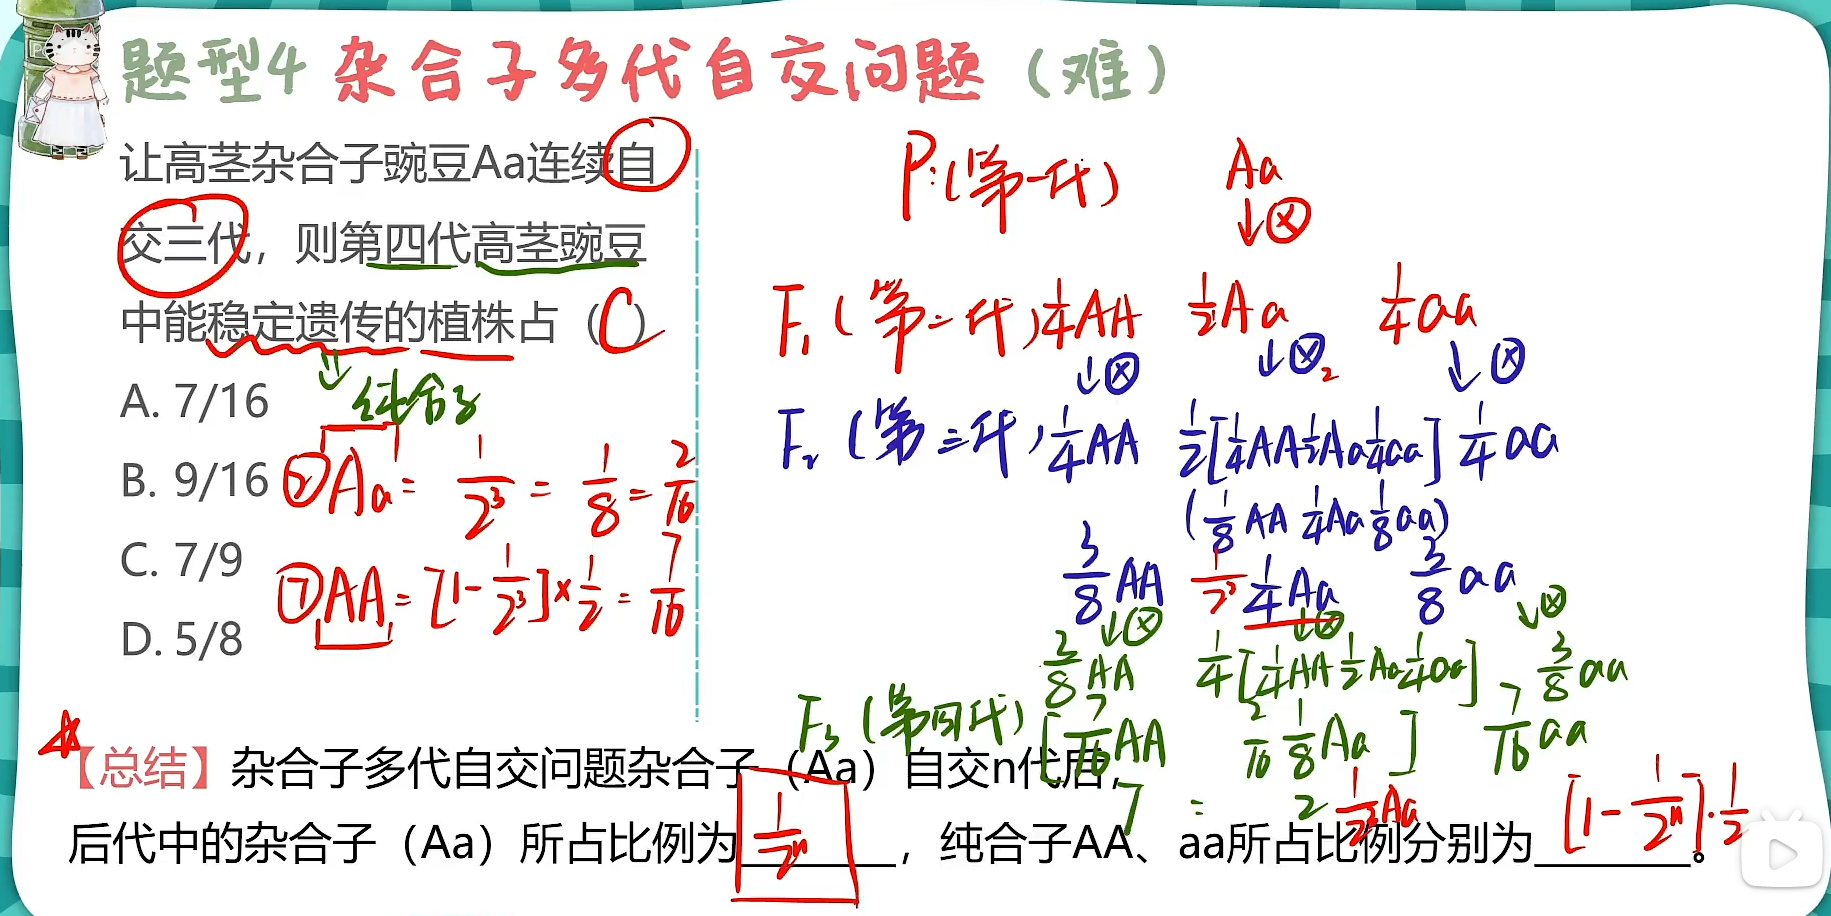 题型4 杂合子多代自交问题（难）
让高茎杂合子豌豆Aa连续自
交三代，则第四代高茎豌豆
中能稳定遗传的植株占（C）
纯合子
A. 7/16
B. 9/16
C. 7/9
D. 5/8
②Aa = 1/2³ = 1/8 = 2/16
①AA = [1-1/2³]×1/2 = 7/16
P:(第一代) Aa
↓⊗
F₁(第二代) 1/4AA 1/2Aa 1/4aa
↓⊗ ↓⊗ ↓⊗
F₂(第三代) 1/4AA 1/2[1/4AA 1/2Aa 1/4aa] 1/4aa
(1/8AA 1/4Aa 1/8aa)
3/8AA 1/4Aa 3/8aa
↓⊗ ↓⊗ ↓⊗
3/8AA 1/4[1/4AA 1/2Aa 1/4aa] 3/8aa
F₃(第四代) [7/16AA 2/16 1/8Aa] 7/16aa
7 : 2
【总结】杂合子多代自交问题杂合子（Aa）自交n代后，
后代中的杂合子（Aa）所占比例为1/2ⁿ，纯合子AA、aa所占比例分别为[1-1/2ⁿ]·1/2。